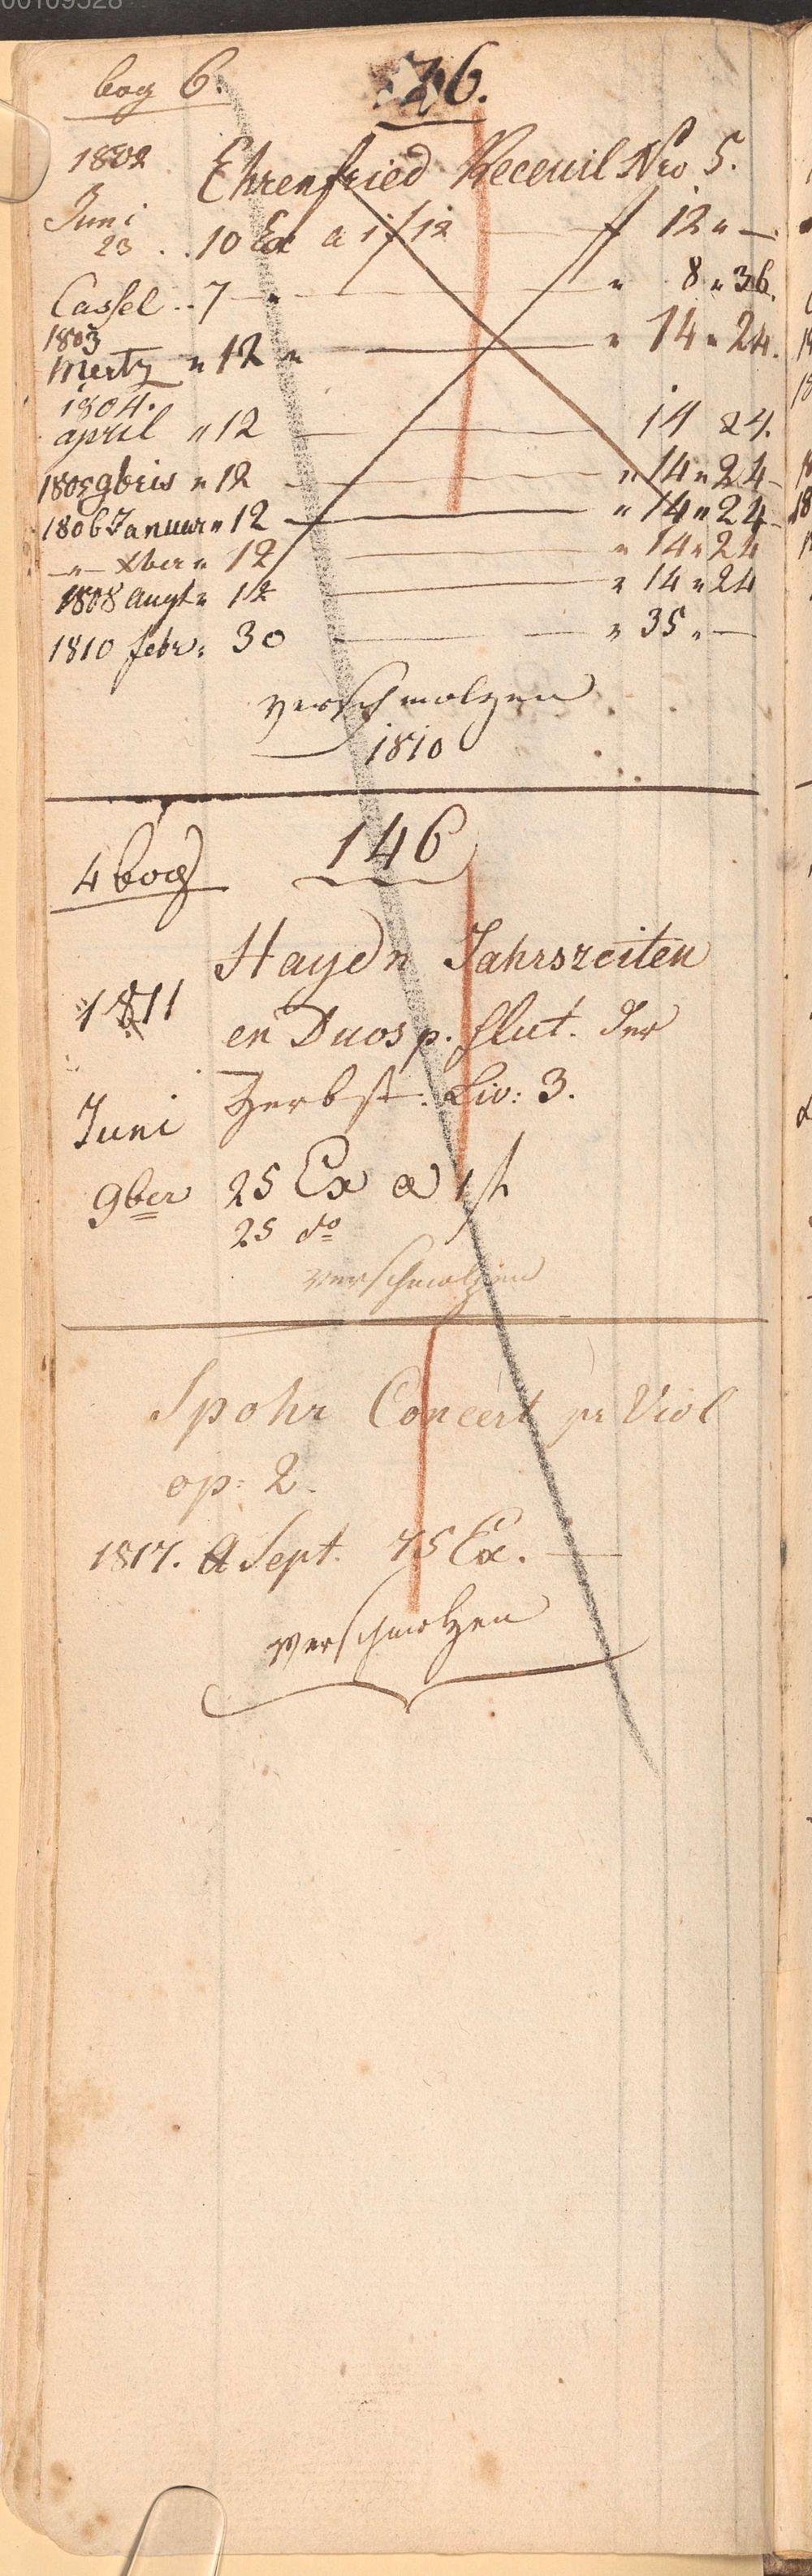 bog 6. 76.
1802 Ehrenfried Receuil Nro 5.
Juni
23 .. 10 Ex a 1 f 12 — f 12 " —
Cassel .. 7 " — " 8 " 36.
1803
Mertz " 12 " — " 14 " 24.
1804.
april " 12 — 14 24.
1805 9bris " 12 — " 14 " 24
1806 Januar " 12 — " 14 " 24
— " — Xber " 12 — " 14 " 24
1808 Augt " 12 — " 14 " 24
1810 febr: 30 — " 35 " —
verschmolzen
1810
4 bog 146
Haydn Jahrszeiten
1811 en Duos p. flut. Der
Herbst. Liv: 3.
Juni
9ber 25 Ex a 1 f
25 do
verschmolzen
Spohr Concert pr Viol
op: 2.
1817. Sept. 75 Ex. —
verschmolzen